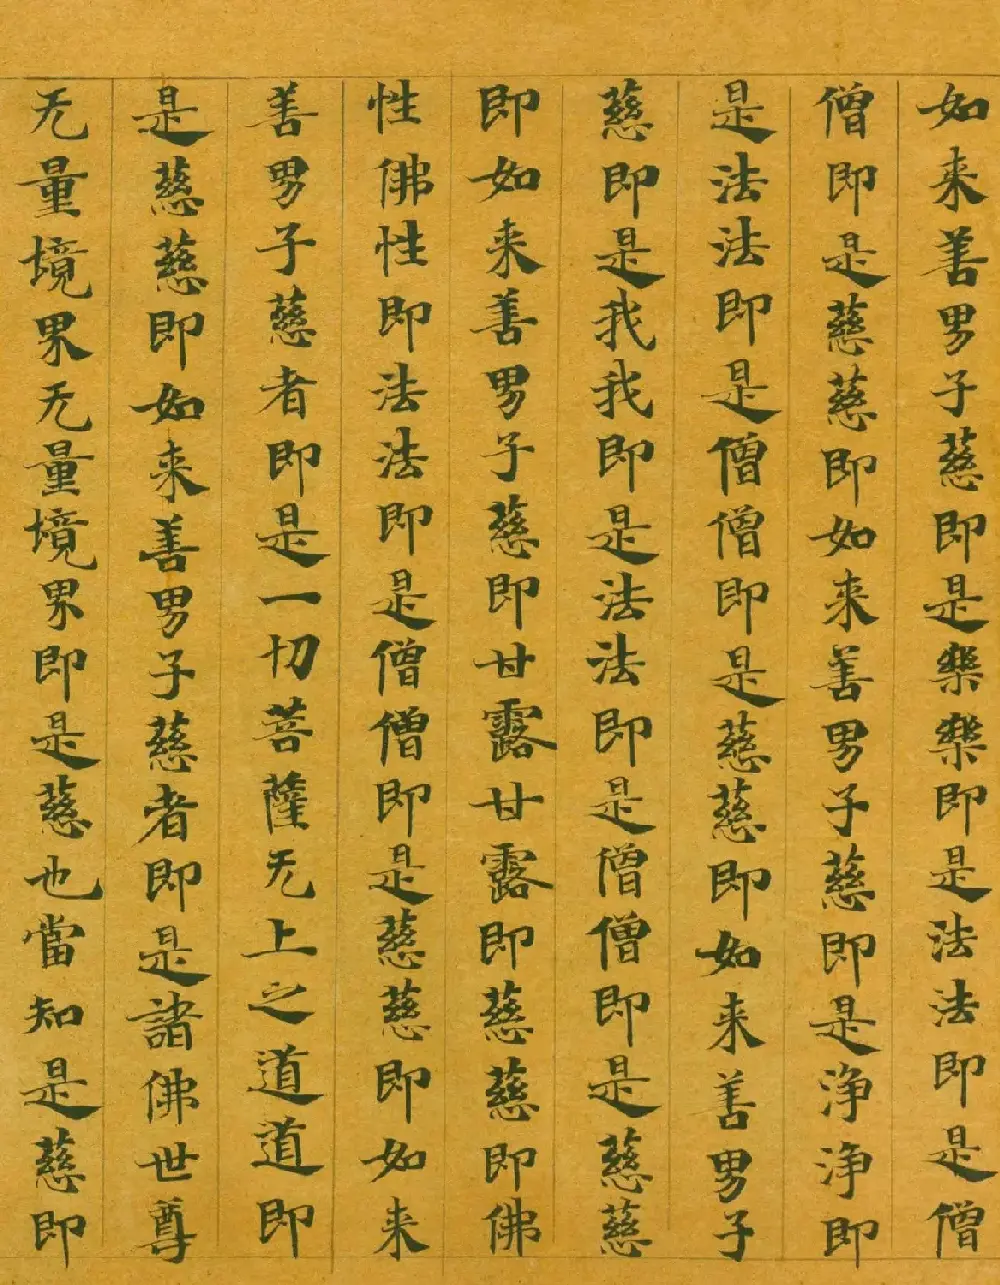 如来善男子慈即是樂樂即是法法即是僧
僧即是慈慈即如来善男子慈即是浄浄即
是法法即是僧僧即是慈慈即如来善男子
慈即是我我即是法法即是僧僧即是慈慈
即如来善男子慈即甘露甘露即慈慈即佛
性佛性即法法即是僧僧即是慈慈即如来
善男子慈者即是一切菩薩无上之道道即
是慈慈即如来善男子慈者即是諸佛世尊
无量境界无量境界即是慈也當知是慈即